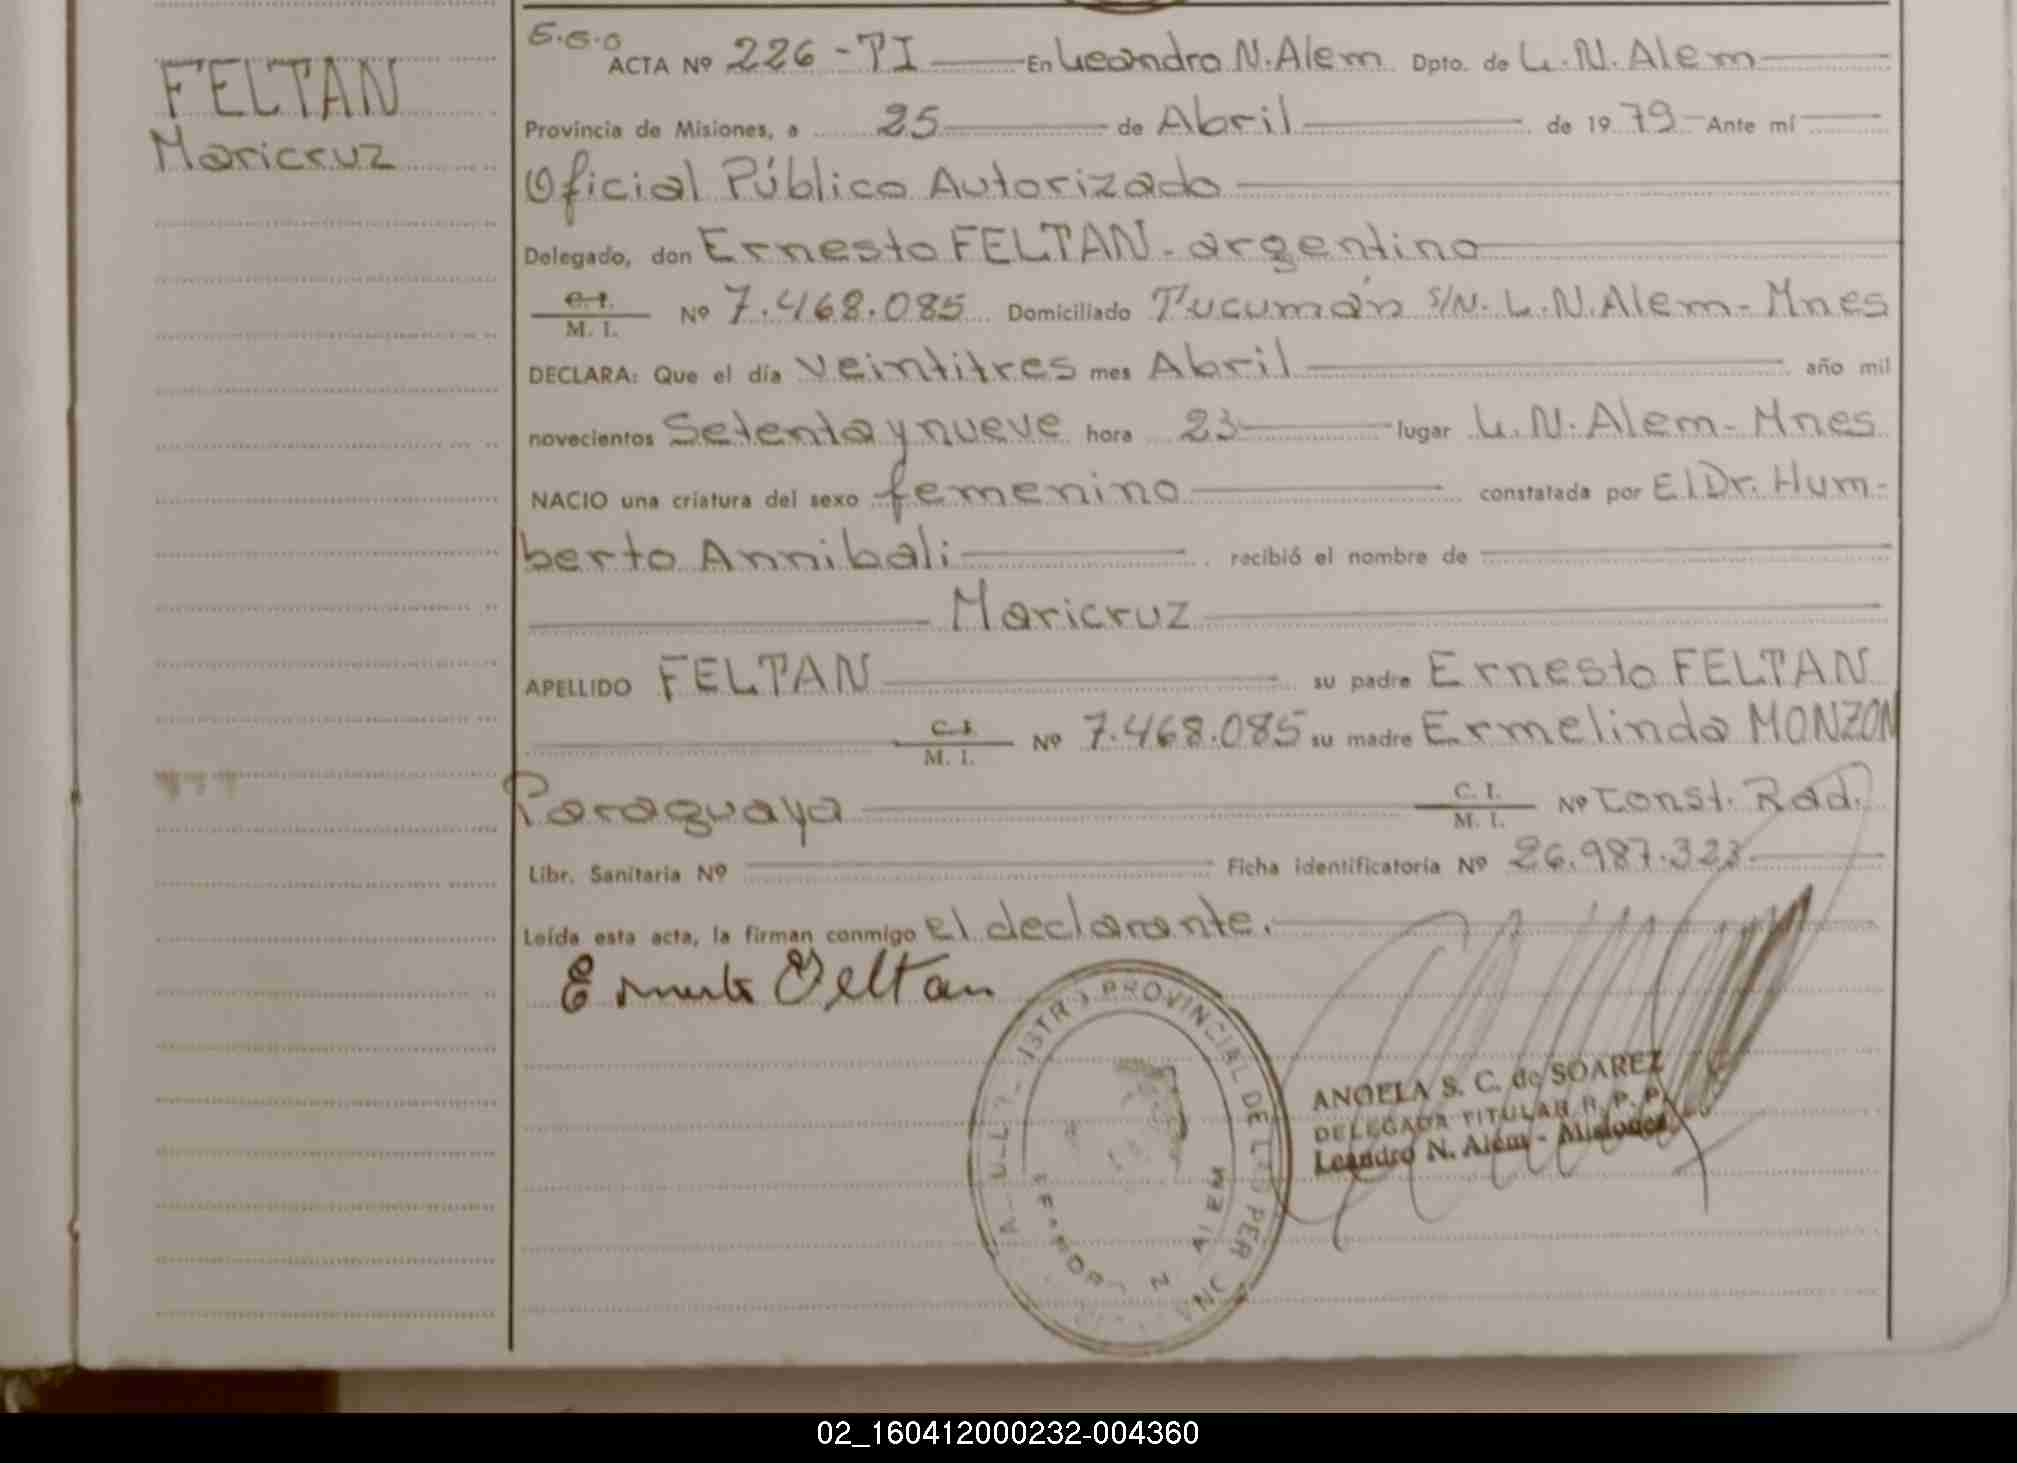 FELTAN
Maricruz
G.G.G
ACTA Nº 226 - TI En Leandro N. Alem Dpto. de L. N. Alem
Provincia de Misiones, a 25 de Abril de 19 79 Ante mí
Oficial Público Autorizado
Delegado, don Ernesto FELTAN - argentino
C.I.
M. I. Nº 7.468.085 Domiciliado Tucumán S/N - L.N. Alem - Mnes
DECLARA: Que el día veintitres mes Abril año mil
novecientos Setenta y nueve hora 23 lugar L. N. Alem - Mnes
NACIO una criatura del sexo femenino constatada por El Dr. Hum-
berto Annibali recibió el nombre de
Maricruz
APELLIDO FELTAN su padre Ernesto FELTAN
C.I.
M. I. Nº 7.468.085 su madre Ermelinda MONZON
Paraguaya C. I.
M. I. Nº Const. Rad.
Libr. Sanitaria Nº Ficha identificatoria Nº 26.987.323
Leída esta acta, la firman conmigo el declarante.
Ernesto Feltan
PROVINCIAL DE LAS PER
ANGELA S. C. de SOAREZ
DELEGADA TITULAR R. P. P.
Leandro N. Alem - Misiones
02_160412000232-004360